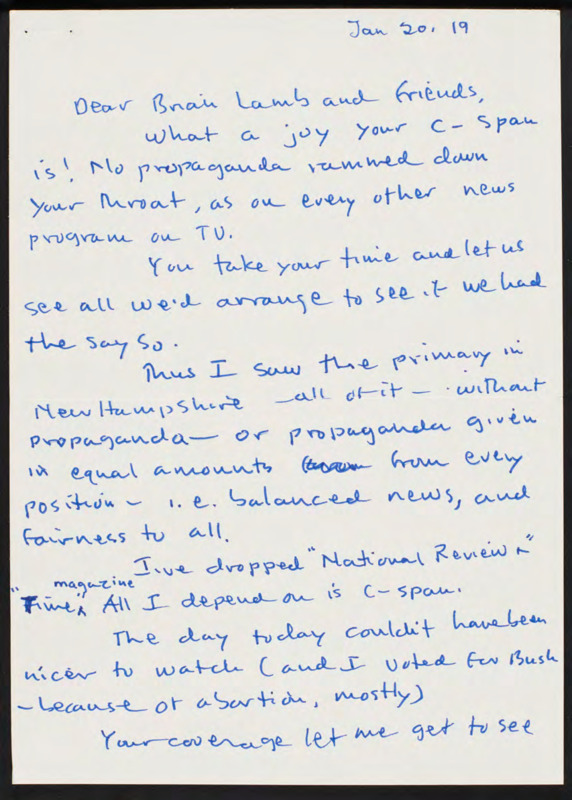 Jan 20, 19
Dear Brian Lamb and friends,
What a joy your C-Span
is! No propaganda rammed down
your throat, as on every other news
program on TV.
You take your time and let us
see all we'd arrange to see if we had
the say so.
Thus I saw the primary in
New Hampshire —all of it — without
propaganda— or propaganda given
in equal amounts from every
position — i.e. balanced news, and
fairness to all.
I've dropped "National Review" &
"Time" magazine. All I depend on is C-span.
The day today couldn't have been
nicer to watch (and I voted for Bush
—because of abortion, mostly)
Your coverage let me get to see